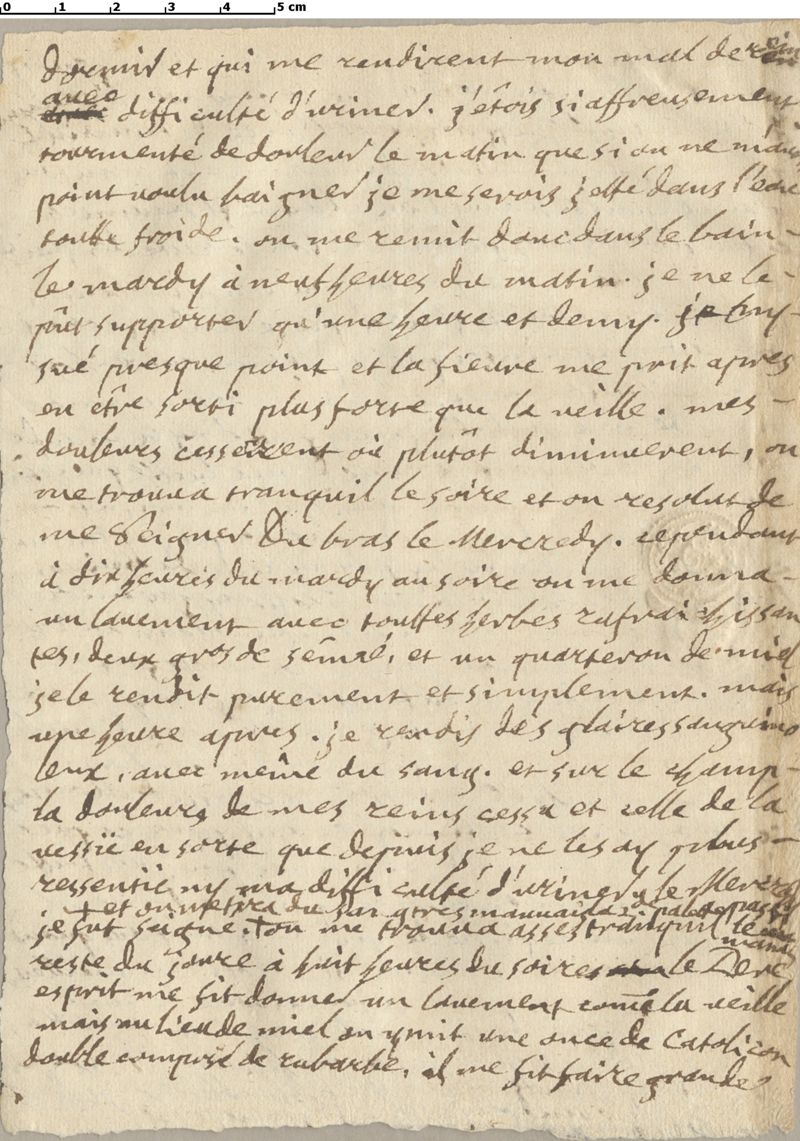 0 1 2 3 4 5 cm
dormir et qui me rendirent mon mal de rein
avec difficulté d'uriner. j'étois si affreusement
tourmenté de douleur le matin que si on ne m'auoit
point voulu baigner je me serois jetté dans l'eau
toutte froide. on me remit donc dans le bain -
le mardy à neuf heures du matin. je ne le -
pût supporter qu'une heure et demy. je n'y -
sué presque point et la fieure me prit apres
en être sorti plus forte que la veille. mes -
douleurs cesserent où plutôt diminuerent, on
me trouva tranquil le soire et on resolut de
me Seigner Du bras le Mercredy. cependant
à dix heures du mardy au soire on me donna -
un lauement avec touttes herbes rafraichissan
tes, deux gros de sênné, et un quarteron de miel
je le rendit purement et simplement. mais
une heure apres. je rendis des glaires sanguino
leux, avec même du sang. et sur le champ -
la douleurs de mes reins cessa et celle de la
vessie en sorte que depuis je ne les ay plus -
ressentie ny ma difficulté d'uriner. le Mercredy
+ et on me tira du sang tres mauvais
je fut saigné. + on me trouva asses tranquil le
reste du joure à huit heures du soire le Pere
esprit me fit donner un lauement come la veille
mais au lieu de miel on y mit une once de Catolicon
double composé de rubarbe, il me fit faire grande